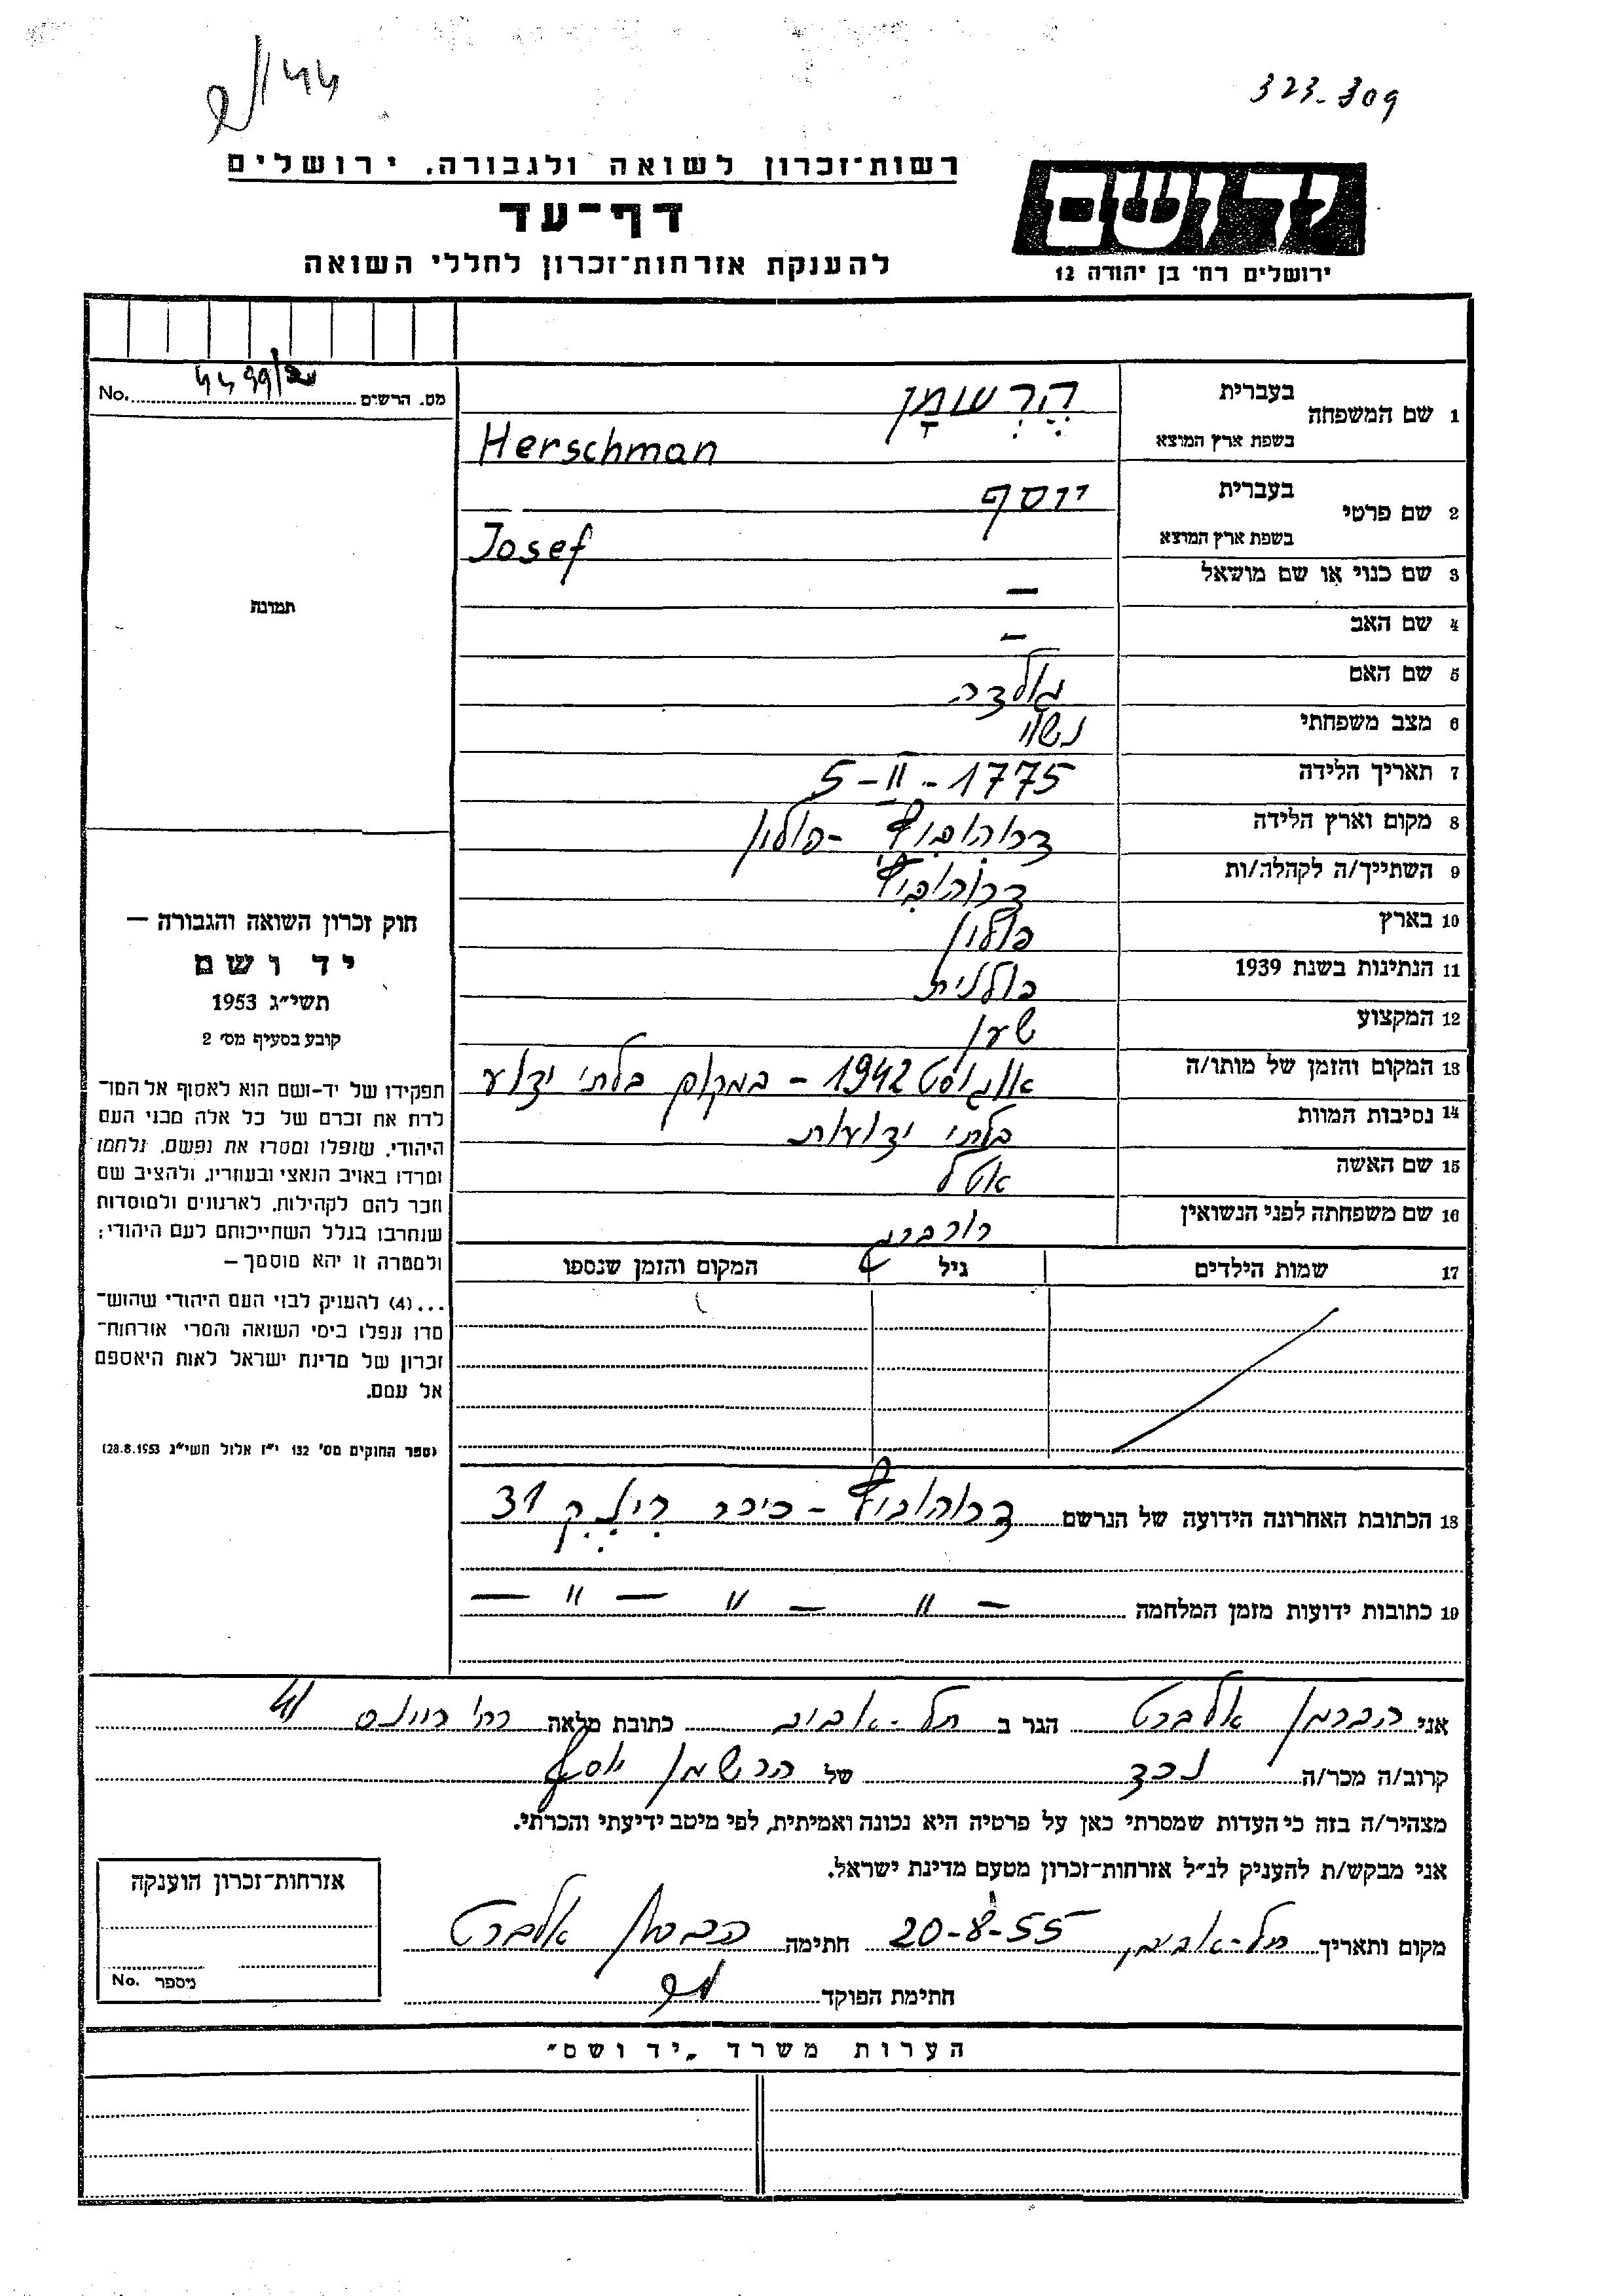 323-309
רשות־זכרון לשואה ולגבורה. ירושלים
יד ושם
דף־עד
ירושלים רח׳ בן יהודה 12
להענקת אזרחות־זכרון לחללי השואה
מס. הרשים No.
1 שם המשפחה בעברית הֶרְשמָן
בשפת ארץ המוצא Herschman
2 שם פרטי בעברית יוסף
בשפת ארץ המוצא Josef
3 שם כנוי או שם מושאל –
4 שם האב –
5 שם האם גולדה
6 מצב משפחתי נשוי
7 תאריך הלידה 5-II-1775
8 מקום וארץ הלידה דרוהוביץ - פולין
9 השתייך/ה לקהלה/ות דרוהוביץ
10 בארץ פולין
11 הנתינות בשנת 1939 פולנית
12 המקצוע שען
13 המקום והזמן של מותו/ה אוגוסט 1942 - במקום בלתי ידוע
14 נסיבות המוות בלתי ידועות
15 שם האשה אטל
16 שם משפחתה לפני הנשואין
17 שמות הילדים גיל המקום והזמן שנספו
18 הכתובת האחרונה הידועה של הנרשם דרוהוביץ - כיכר רינק 31
19 כתובות ידועות מזמן המלחמה – " – " – " –
תמונה
חוק זכרון השואה והגבורה –
יד ושם
תשי״ג 1953
קובע בסעיף מס׳ 2
תפקידו של יד-ושם הוא לאסוף אל המו־
לדת את זכרם של כל אלה מבני העם
היהודי, שנפלו ומסרו את נפשם, נלחמו
ומרדו באויב הנאצי ובעוזריו, ולהציב שם
וזכר להם לקהילות, לארגונים ולמוסדות
שנחרבו בגלל השתייכותם לעם היהודי;
ולמטרה זו יהא מוסמך –
...(4) להעניק לבני העם היהודי שהוש־
מדו ונפלו בימי השואה והמרי אזרחות־
זכרון של מדינת ישראל לאות היאספם
אל עמם.
(ספר החוקים מס׳ 132 י״ז אלול תשי״ג 28.8.1953)
אני הברמן אלברט הגר ב תל-אביב כתובת מלאה רח׳ ריינס 41
קרוב/ה מכר/ה נכד של הרשמן יוסף
מצהיר/ה בזה כי העדות שמסרתי כאן על פרטיה היא נכונה ואמיתית, לפי מיטב ידיעתי והכרתי.
אני מבקש/ת להעניק לנ״ל אזרחות-זכרון מטעם מדינת ישראל.
מקום ותאריך תל-אביב, 20-8-55 חתימה הברמן אלברט
חתימת הפוקד
אזרחות-זכרון הוענקה
מספר No.
הערות משרד „יד ושם״